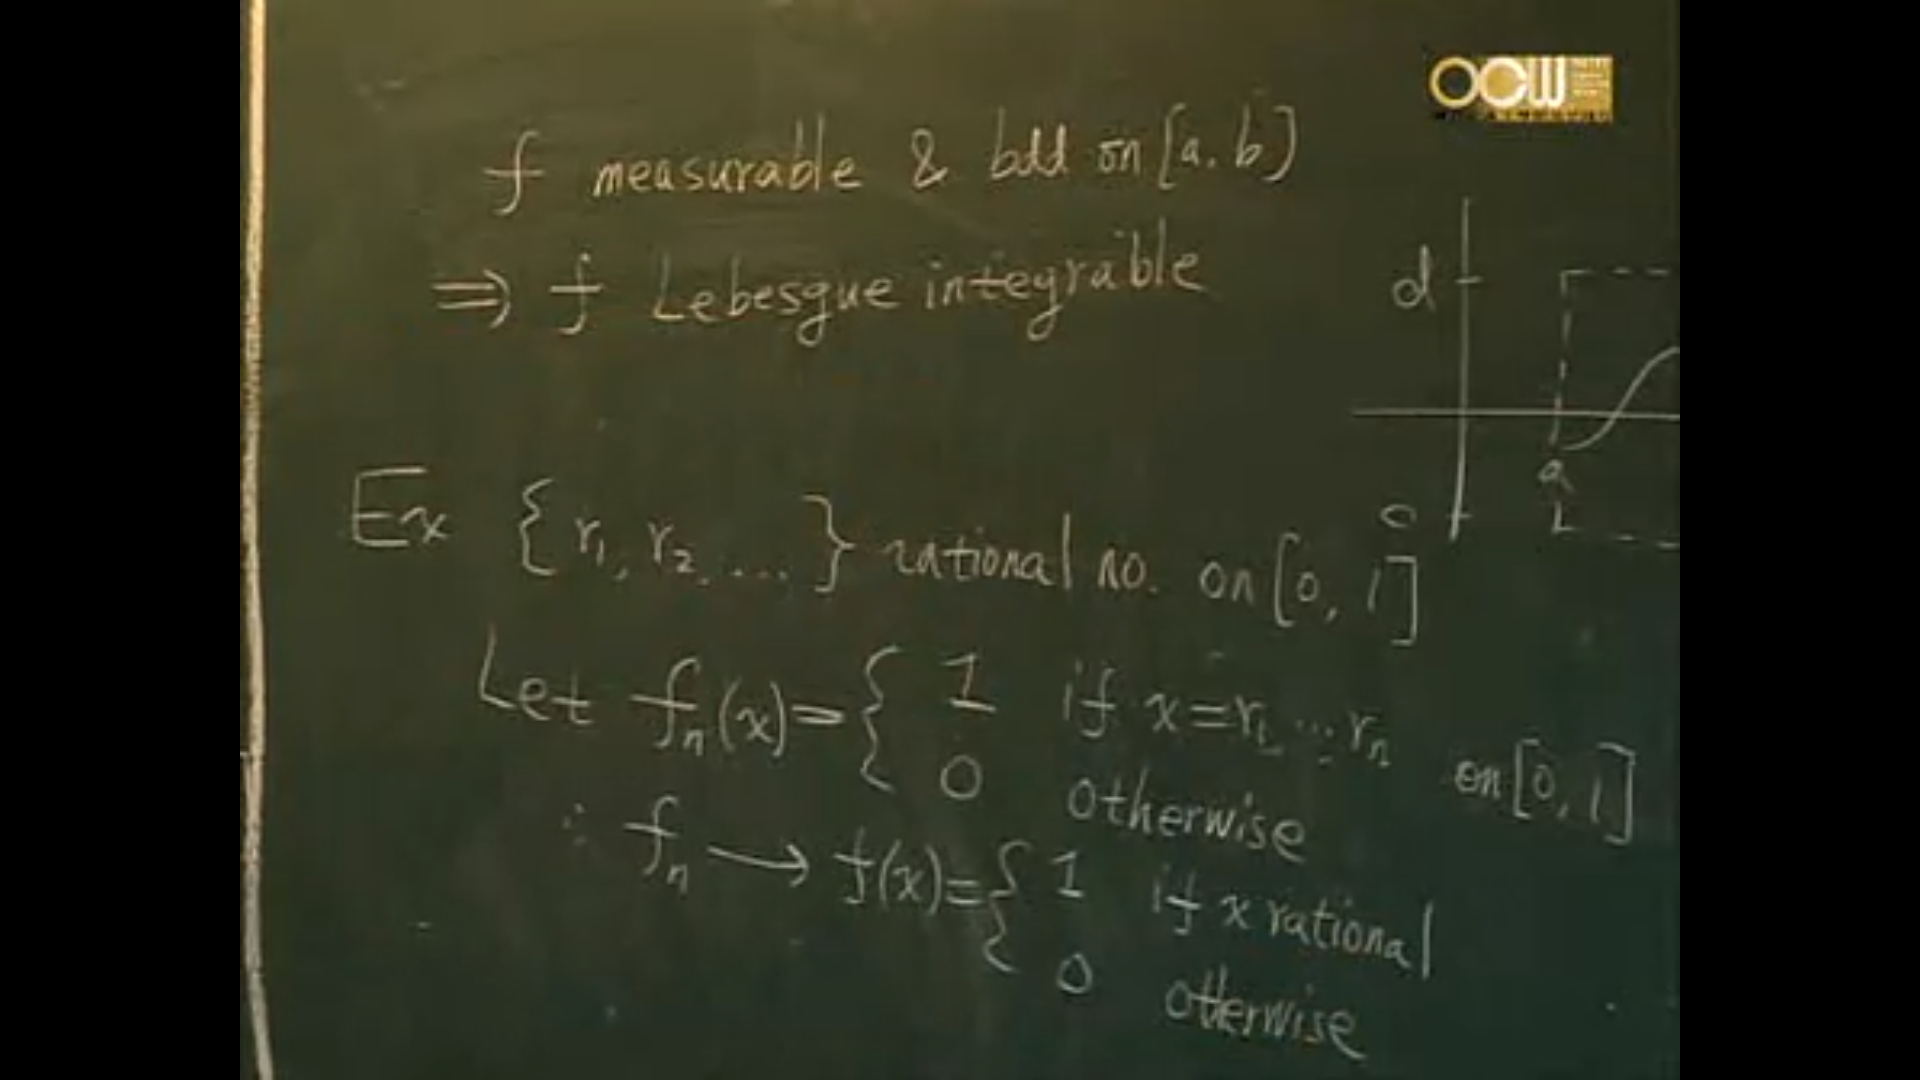 OCW
f measurable & bdd on [a, b]
⇒ f Lebesgue integrable
d
a
c
Ex {r₁, r₂, ...} rational no. on [0, 1]
Let fₙ(x) = { 1 if x = r₁, ..., rₙ
0 otherwise on [0, 1]
∴ fₙ → f(x) = { 1 if x rational
0 otherwise